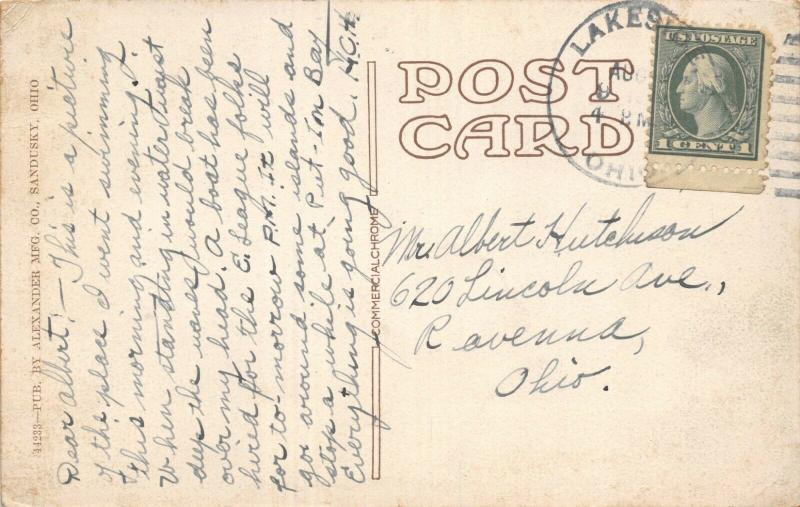 44233—PUB. BY ALEXANDER MFG. CO., SANDUSKY, OHIO
Dear Albert:— This is a picture
of the place I went swimming
this morning and evening.
When standing in water waist
deep the waves would break
over my head. A boat has been
hired for the E. League folks
for to-morrow P.M. It will
go around some islands and
stop a while at Put-In Bay
Everything is going good. H.C.H.
COMMERCIALCHROME
POST
CARD
LAKES
AUG
9
4 PM
OHIO
U.S. POSTAGE
1 CENT 1
Mr. Albert Hutchison
620 Lincoln Ave.,
Ravenna,
Ohio.